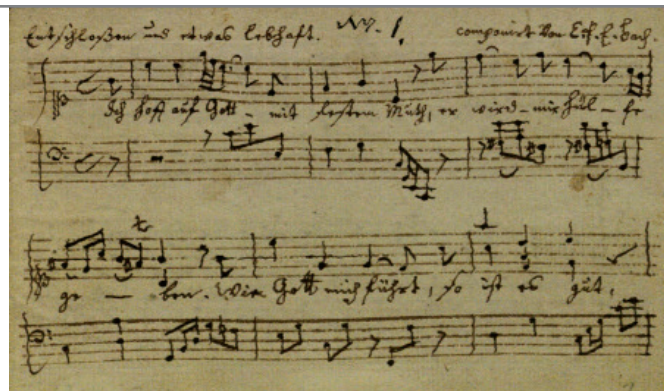 Entschloßen und etwas lebhaft. No. 1. componirt von
Ich hoff auf Gott – mit festem Muth, er wird – mir Hül – fe
ge – ben. Wie Gott mich führt, so ist es gut,